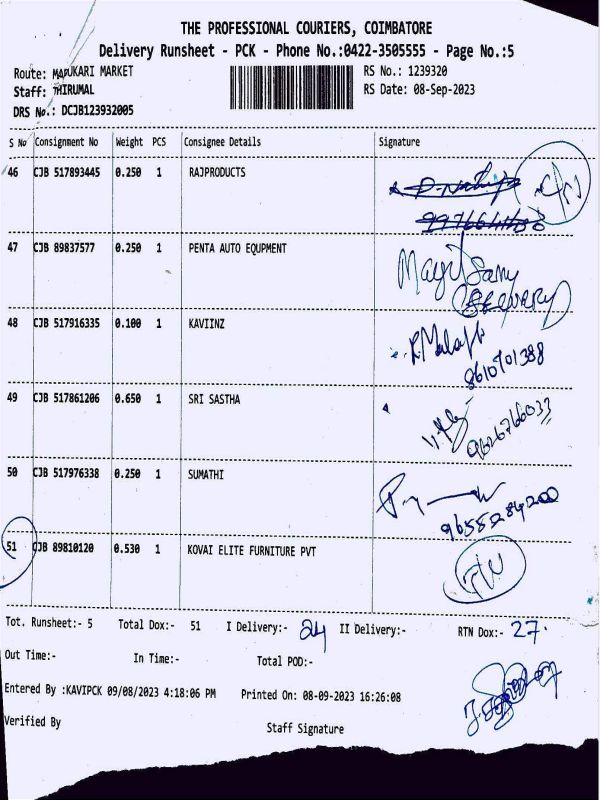 THE PROFESSIONAL COURIERS, COIMBATORE
Delivery Runsheet - PCK - Phone No.:0422-3505555 - Page No.:5
Route: MARUKARI MARKET RS No.: 1239320
Staff: THIRUMAL RS Date: 08-Sep-2023
DRS No.: DCJB123932005
S No Consignment No Weight PCS Consignee Details Signature
46 CJB 517893445 0.250 1 RAJPRODUCTS
47 CJB 89837577 0.250 1 PENTA AUTO EQUPMENT
48 CJB 517916335 0.100 1 KAVIINZ
8610701388
49 CJB 517861206 0.650 1 SRI SASTHA
50 CJB 517976338 0.250 1 SUMATHI
51 CJB 89810120 0.530 1 KOVAI ELITE FURNITURE PVT
Tot. Runsheet:- 5 Total Dox:- 51 I Delivery:- 24 II Delivery:- RTN Dox:- 27.
Out Time:- In Time:- Total POD:-
Entered By :KAVIPCK 09/08/2023 4:18:06 PM Printed On: 08-09-2023 16:26:08
Verified By Staff Signature